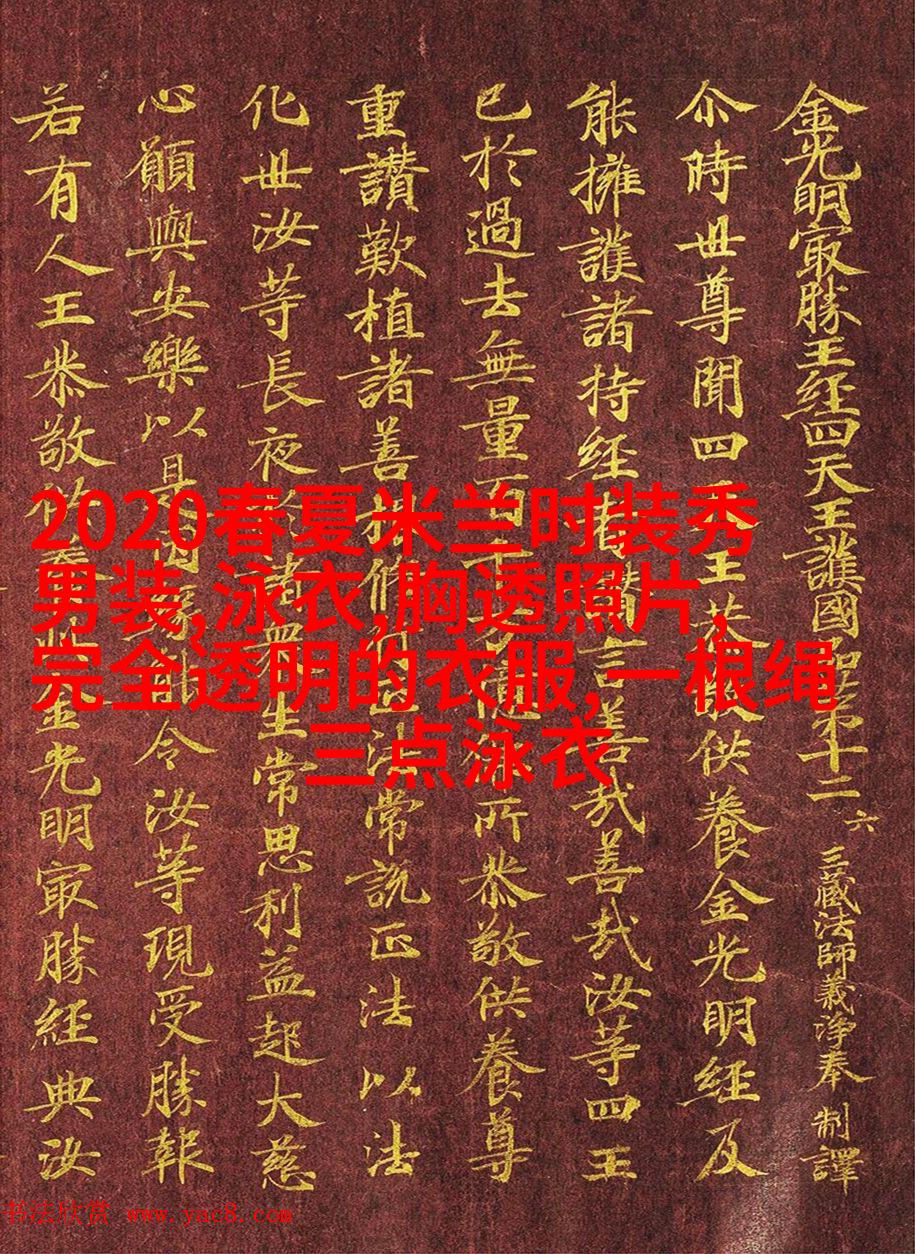 金光明冣勝王經四天王護國品第十二 六 三藏法師義淨奉 制譯
尒時世尊聞四天王恭敬供養金光明經及
能擁護諸持經者讃言善哉善哉汝等四王
已於過去無量百千万億佛所恭敬供養尊
重讚歎植諸善根修行正法常說正法以法
化世汝等長夜於諸衆生常思利益起大慈
心願與安樂以是因緣能令汝等現受勝報
若有人王恭敬供養此金光明冣勝經典汝
2020春夏米兰时装秀
男装,泳衣,胸透照片,
完全透明的衣服,一根绳
三点泳衣
书法欣赏 www.yac8.com